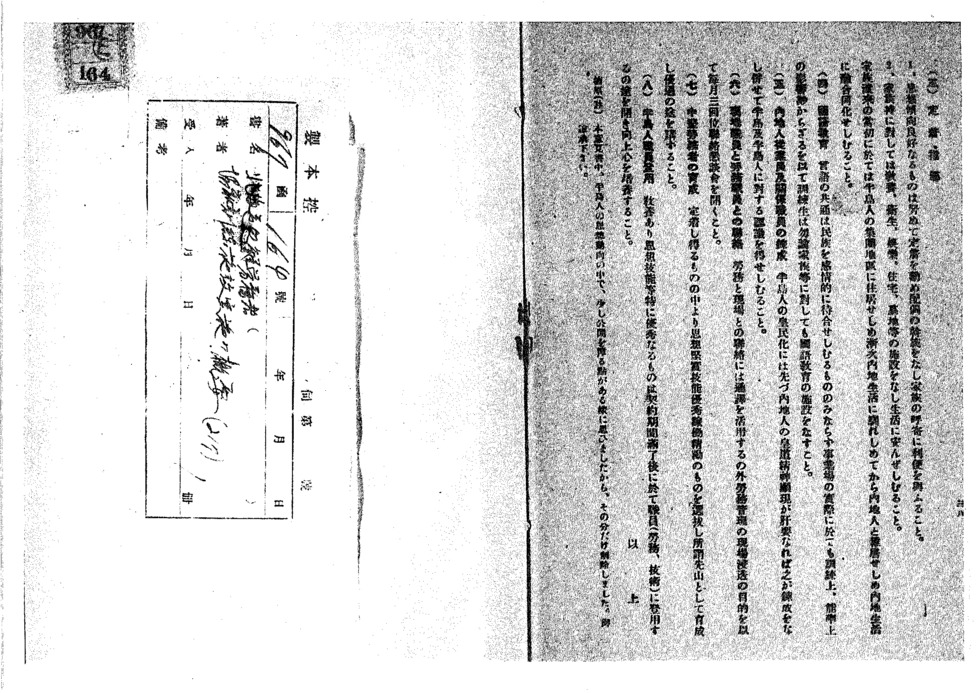 (三) 定着指導
1、思想傾向良好なるものは努めて定着を勧め配偶の斡旋をなし家族の呼寄に利便を與ふること。
2、家族持に対しては教養、衛生、娯楽、住宅、墓地等の施設をなし生活に安んぜしむること。
家族渡來の當初に於ては半島人の集團地區に住居せしめ漸次内地生活に馴れしめてから内地人と雜居せしめ内地生活
に融合同化せしむること。
(四) 國語教育 言語の共通は民族を感情的に結合せしむるもののみならず事業場の實際に於ても訓練上、能率上
の影響勘からざるを以て訓練生は勿論家族等に對しても國語教育の施設をなすこと。
(五) 内地人從業員及指導職員の練成 半島人の皇民化には先づ内地人の皇道精神顯現が肝要なれば之が練成をな
し併せて半島及半島人に對する認識を得せしむること。
(六) 現場職員と勞務職員との聯絡 勞務と現場との聯絡には通譯を活用するの外勞務管理の現場浸透の目的を以
て毎月三回位聯絡懇談會を開くこと。
(七) 中堅勞務者の育成 定着し得るものの中より思想堅實技能優秀稼働精勵のものを選拔し所謂先山として育成
し優遇の途を講ずること。
(八) 半島人職員登用 教養あり思想技能等特に優秀なるものは契約期間滿了後に於て職員(勞務、技術)に登用す
るの途を開き向上心を培養すること。
以上
本意見書中、半島人の思想動向の中で、少し公開を憚る點がある樣に思ひましたから、その分だけ削除しました。御
諒承下さい。
製本控
伺第 號
967 函 164 號 年 月 日
書名 北海道
著者
受入 年 月 日 1 冊
備考
967
164